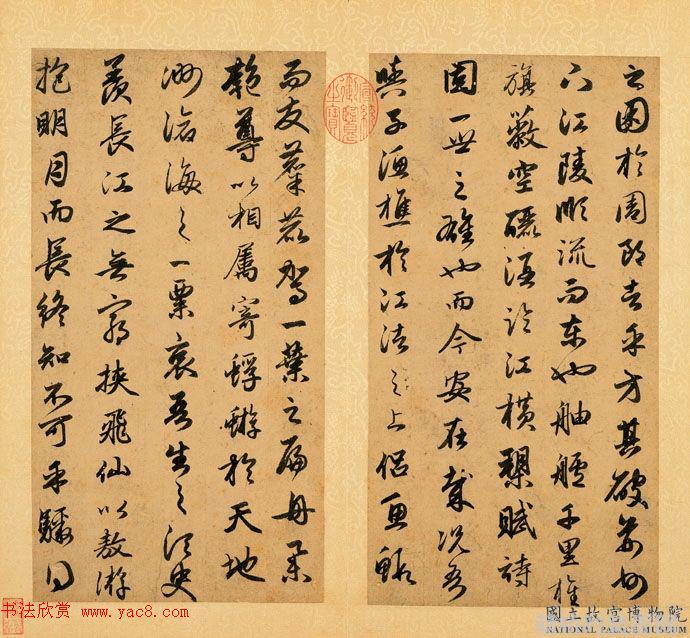 之困於周郎者乎方其破荊州
下江陵順流而東也舳艫千里旌
旗蔽空釃酒臨江橫槊賦詩
固一世之雄也而今安在哉況吾
與子漁樵於江渚之上侶魚蝦
而友麋鹿駕一葉之扁舟舉
匏尊以相屬寄蜉蝣於天地
渺滄海之一粟哀吾生之須臾
羨長江之無窮挾飛仙以遨游
抱明月而長終知不可乎驟得
宣統御覽之寶
书法欣赏 www.yac8.com
國立故宮博物院
NATIONAL PALACE MUSEUM